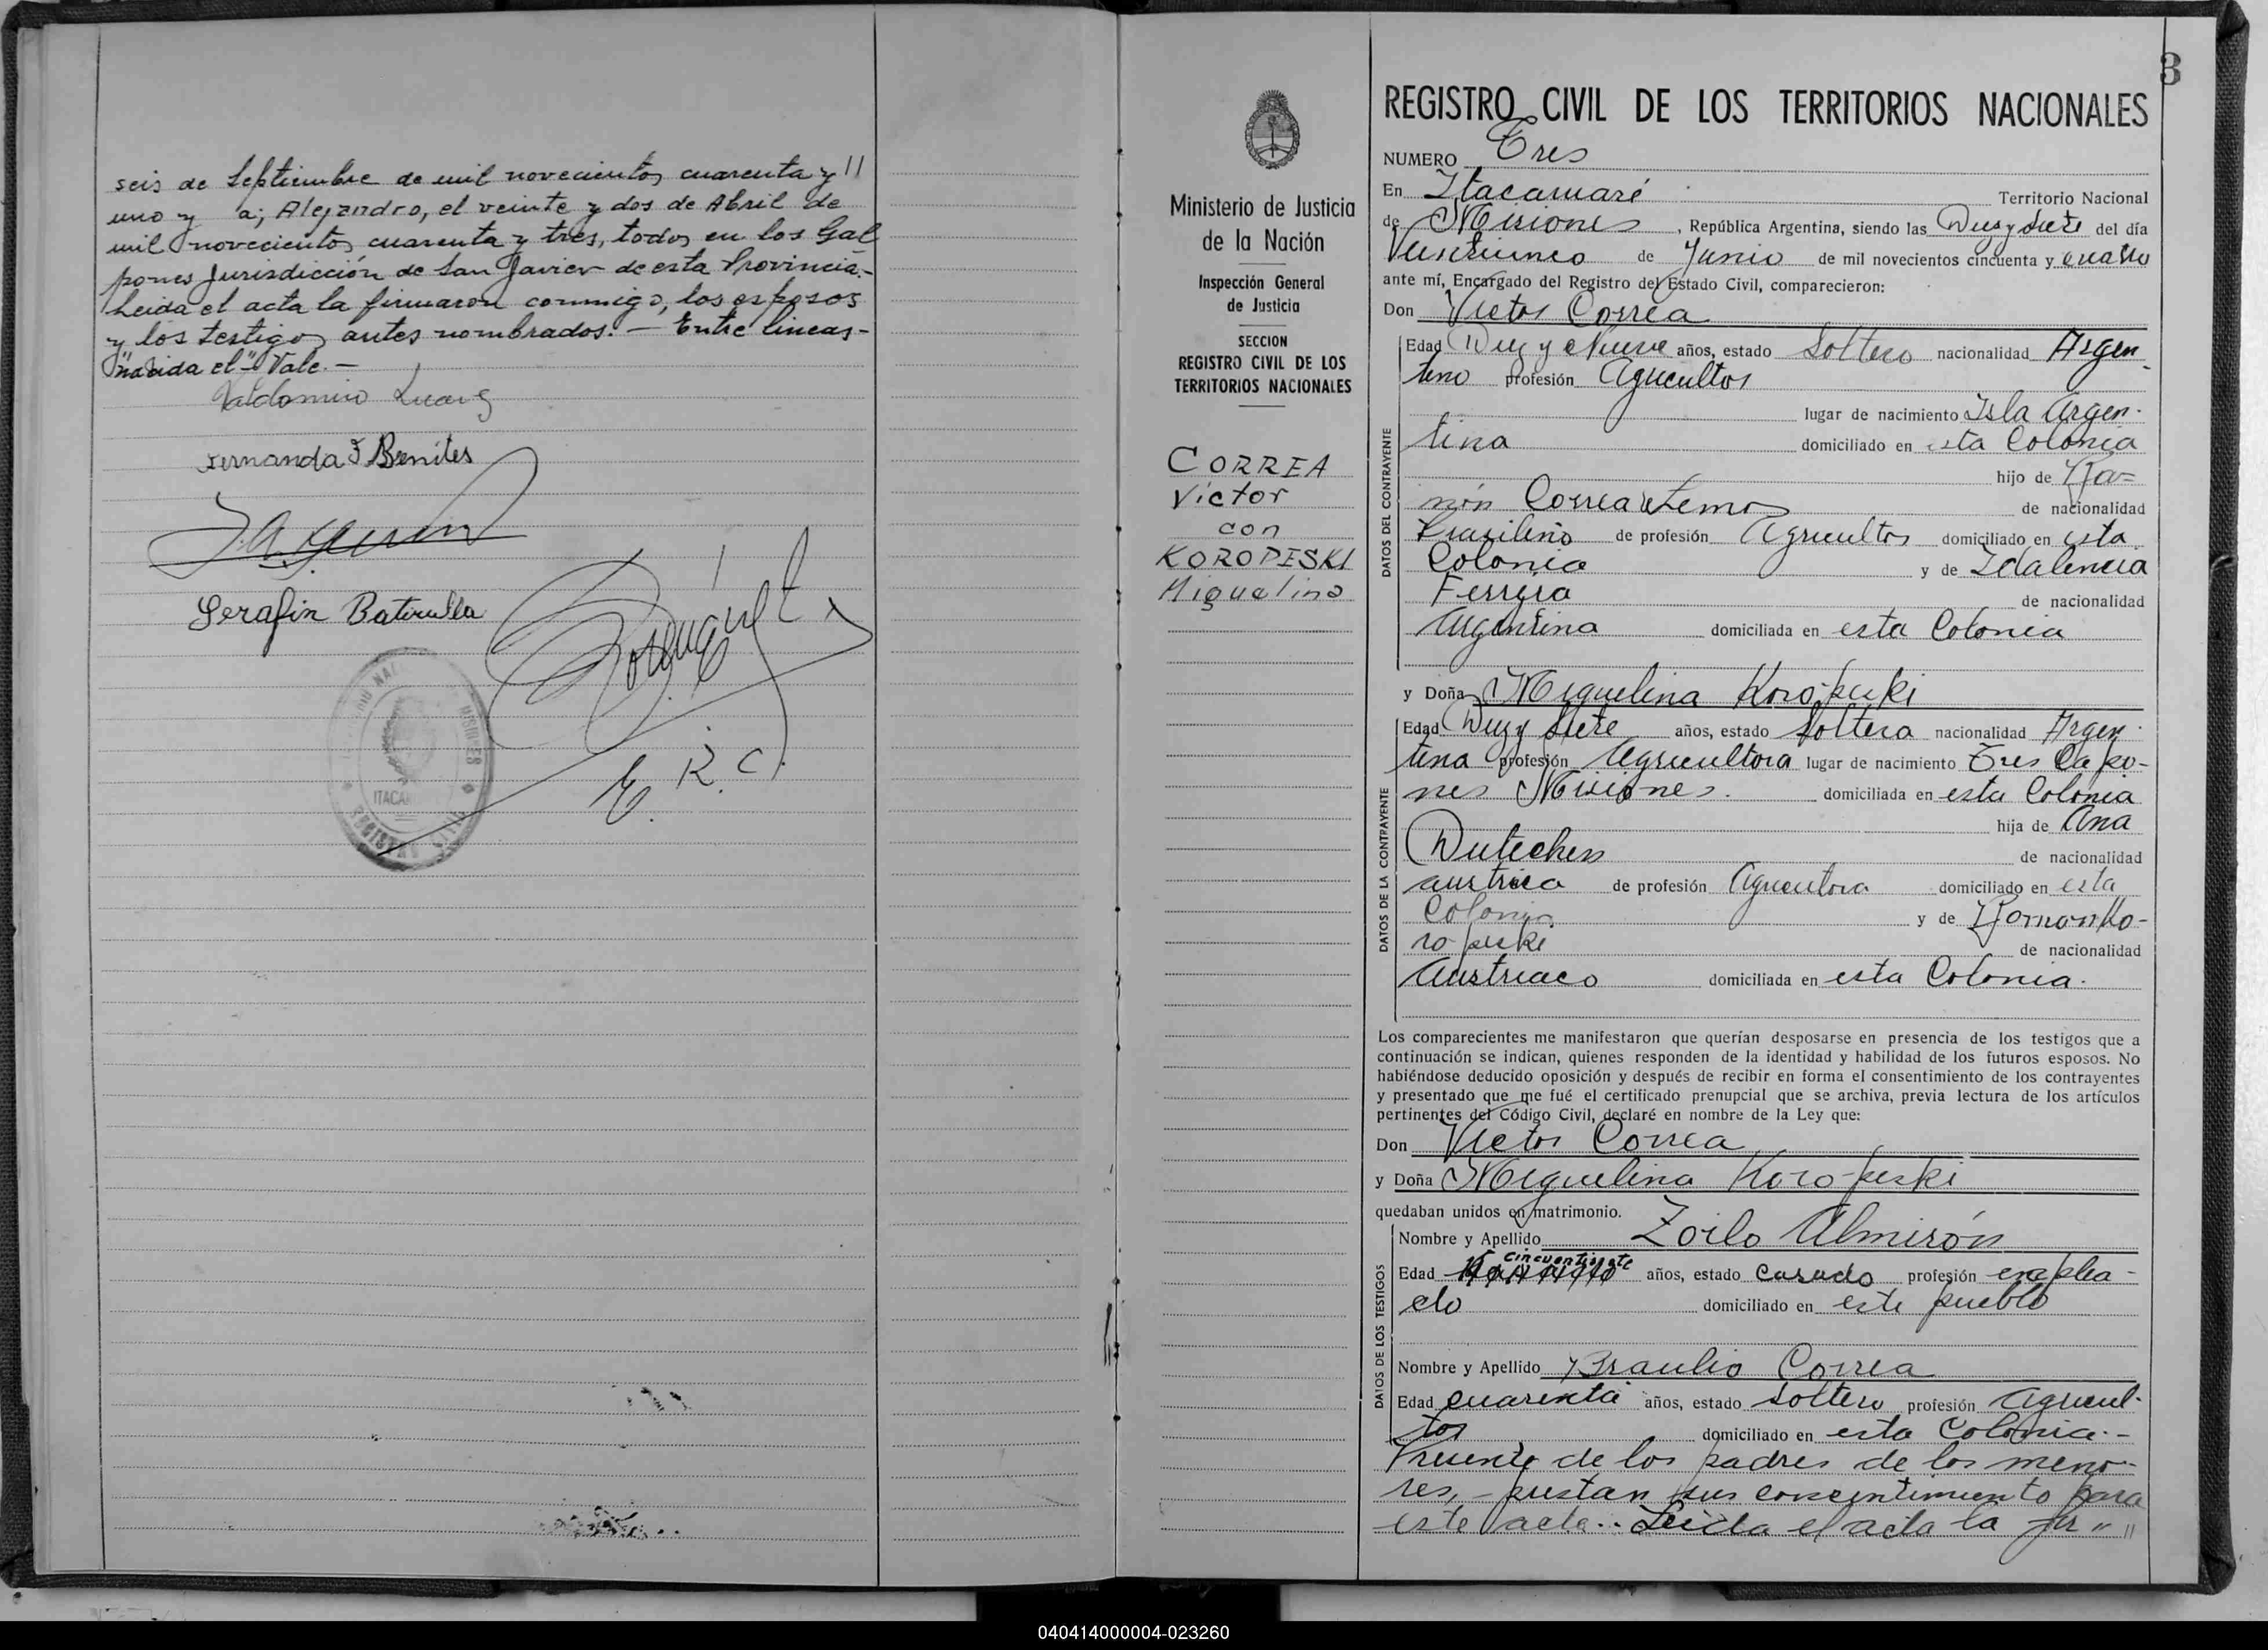 seis de Septiembre de mil novecientos cuarenta y //
uno y a; Alejandro, el veinte y dos de Abril de
mil novecientos cuarenta y tres, todos en los Gal
pones Jurisdicción de San Javier de esta Provincia.-
Leida el acta la firmaron conmigo, los esposos
y los testigos antes nombrados. — Entre lineas-
"nacida el" Vale. —
Valdomiro
Fernanda F Benites
Serafin Batirulla
E. R. C.
REGISTRO
ITACAR
MISIONES
3
Ministerio de Justicia
de la Nación
Inspección General
de Justicia
SECCION
REGISTRO CIVIL DE LOS
TERRITORIOS NACIONALES
CORREA
Víctor
con
KOROPESKI
Miguelina
REGISTRO CIVIL DE LOS TERRITORIOS NACIONALES
NUMERO Tres
En Itacaruaré Territorio Nacional
de Misiones, República Argentina, siendo las Diez y siete del día
Veinticinco de Junio de mil novecientos cincuenta y cuatro
ante mí, Encargado del Registro del Estado Civil, comparecieron:
Don Victor Correa
DATOS DEL CONTRAYENTE
Edad Diez y Nueve años, estado Soltero nacionalidad Argen
tino profesión Agricultor
lugar de nacimiento Isla Argen-
tina domiciliado en esta Colonia
hijo de Ra=
món Correa Lemos de nacionalidad
Brasileño de profesión Agricultor domiciliado en esta
Colonia y de Idalencia
Ferreira de nacionalidad
Argentina domiciliada en esta Colonia
y Doña Miguelina Koro-peski
DATOS DE LA CONTRAYENTE
Edad Diez y Siete años, estado Soltera nacionalidad Argen-
tina profesión Agricultora lugar de nacimiento Tres Capo-
nes Misiones. domiciliada en esta Colonia
hija de Ana
Dutechen de nacionalidad
austrica de profesión Agricultora domiciliado en esta
Colonia y de Roman Ko-
ro-peski de nacionalidad
Austriaco domiciliada en esta Colonia.
Los comparecientes me manifestaron que querían desposarse en presencia de los testigos que a
continuación se indican, quienes responden de la identidad y habilidad de los futuros esposos. No
habiéndose deducido oposición y después de recibir en forma el consentimiento de los contrayentes
y presentado que me fué el certificado prenupcial que se archiva, previa lectura de los artículos
pertinentes del Código Civil, declaré en nombre de la Ley que:
Don Victor Correa
y Doña Miguelina Koro-peski
quedaban unidos en matrimonio.
DATOS DE LOS TESTIGOS
Nombre y Apellido Zoilo Almirón
Edad cincuentisiete años, estado casado profesión emplea-
do domiciliado en este pueblo
Nombre y Apellido Braulio Correa
Edad cuarenta años, estado Soltero profesión Agricul-
tor domiciliado en esta Colonia.-
Presente de los padres de los meno-
res, - prestan sus consentimiento para
este acta.. Leida el acta la fir " //
040414000004-023260